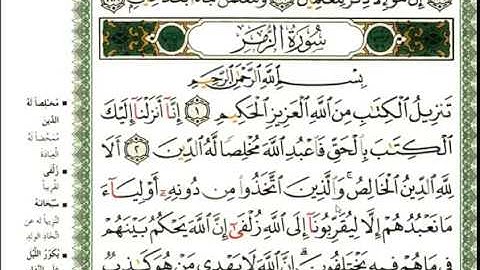 إِنْ هُوَ إِلَّا ذِكْرٌ لِّلْعَالَمِينَ ۝ وَلَتَعْلَمُنَّ نَبَأَهُ بَعْدَ حِينٍ
سُورَةُ الزُّمَرِ
بِسْمِ اللَّهِ الرَّحْمَٰنِ الرَّحِيمِ
تَنزِيلُ الْكِتَابِ مِنَ اللَّهِ الْعَزِيزِ الْحَكِيمِ ۝١ إِنَّا أَنزَلْنَا إِلَيْكَ
الْكِتَابَ بِالْحَقِّ فَاعْبُدِ اللَّهَ مُخْلِصًا لَّهُ الدِّينَ ۝٢ أَلَا
لِلَّهِ الدِّينُ الْخَالِصُ وَالَّذِينَ اتَّخَذُوا مِن دُونِهِ أَوْلِيَاءَ
مَا نَعْبُدُهُمْ إِلَّا لِيُقَرِّبُونَا إِلَى اللَّهِ زُلْفَىٰ إِنَّ اللَّهَ يَحْكُمُ بَيْنَهُمْ
فِي مَا هُمْ فِيهِ يَخْتَلِفُونَ إِنَّ اللَّهَ لَا يَهْدِي مَنْ هُوَ كَاذِبٌ
مُخْلِصًا لَهُ
الدِّينَ
مُمَحِّضًا لَهُ
العِبَادَةَ
زُلْفَى
تَقْرِيبًا
سُبْحَانَهُ
تَنْزِيهًا لَهُ عَنِ
اتِّخَاذِ الوَلَدِ
يُكَوِّرُ اللَّيْلَ